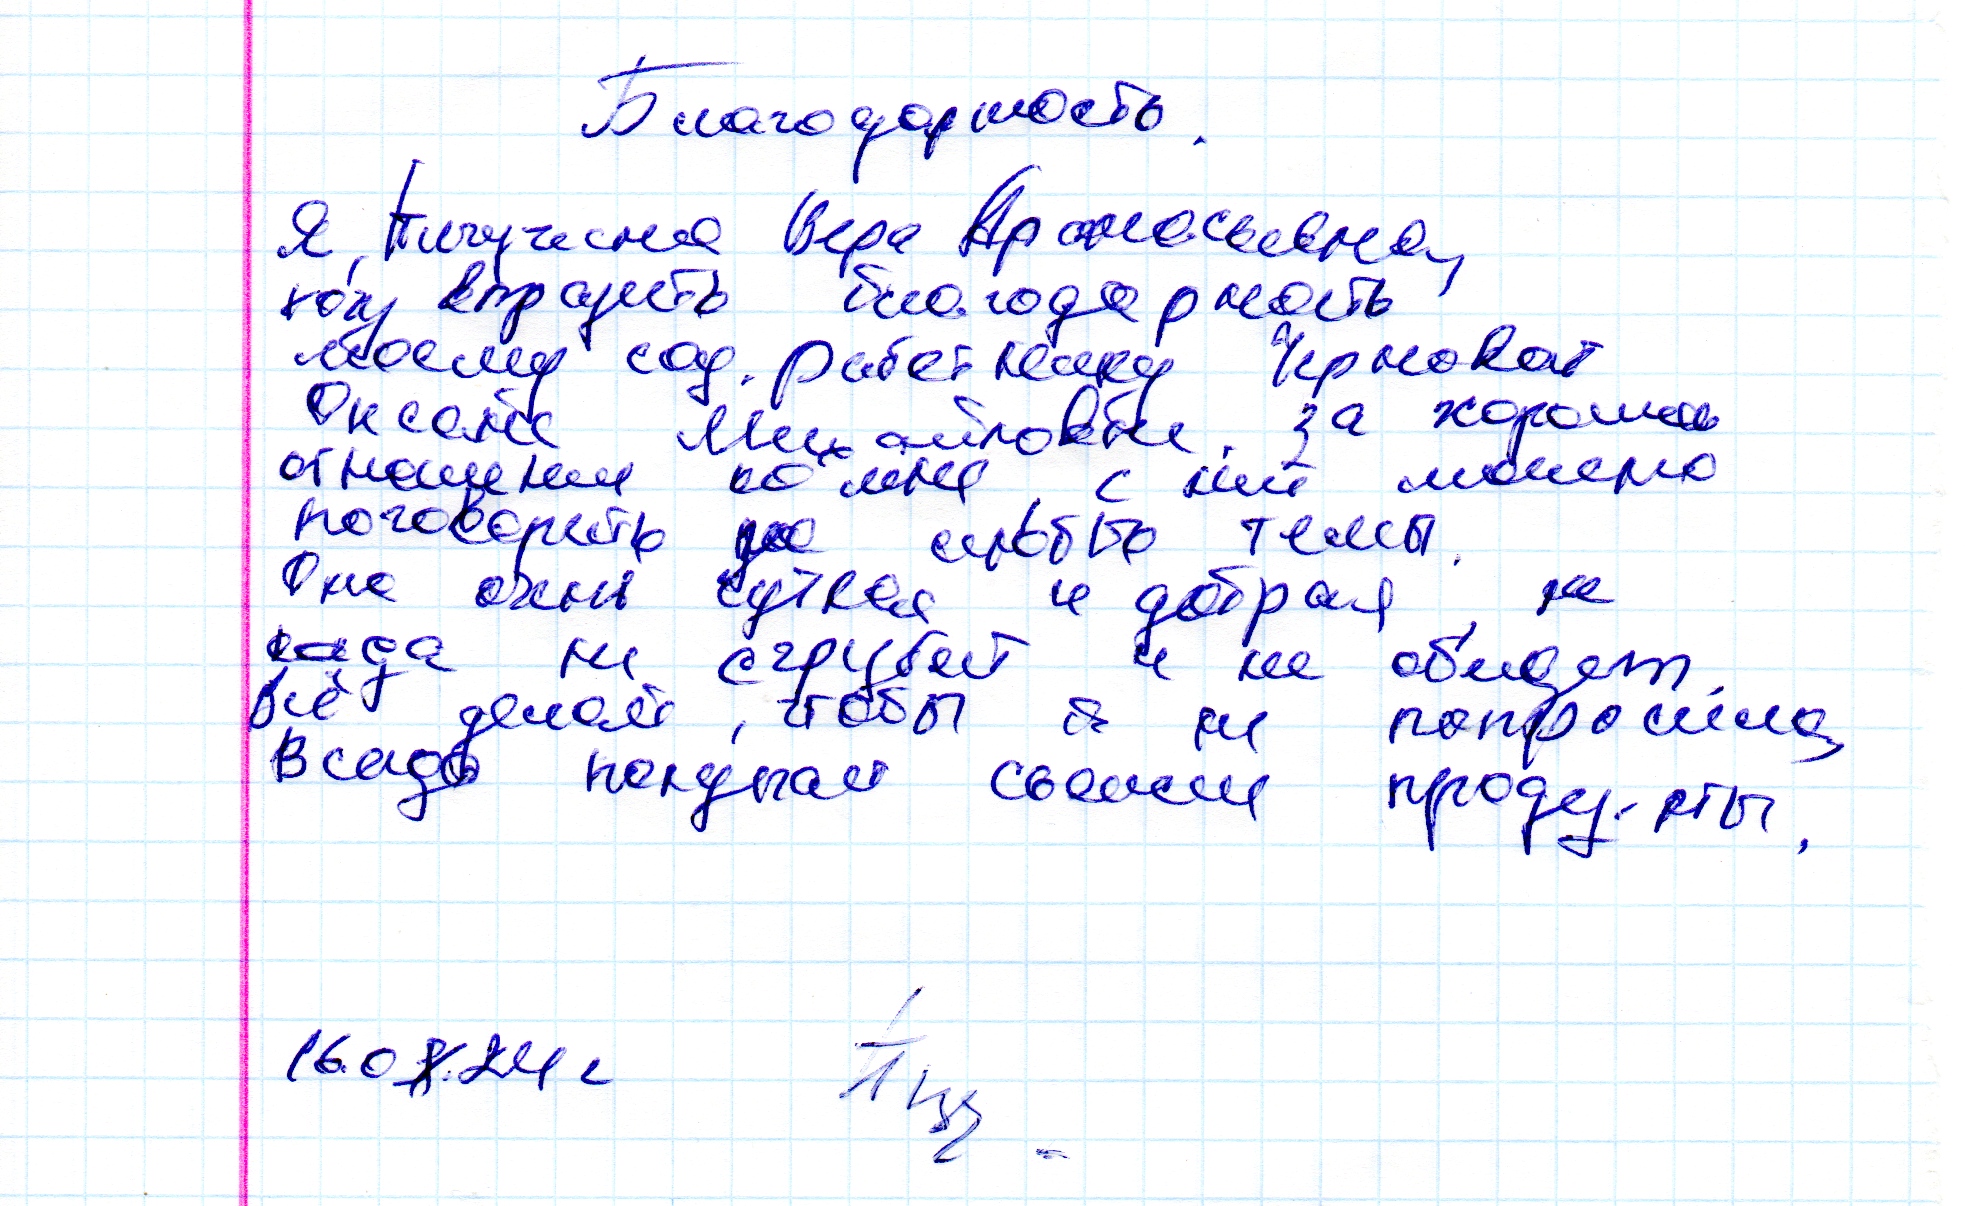 Благодарность.
Я, Вера Афанасьевна,
хочу выразить благодарность
моему соц. работнику
Оксане Михайловне. За хорошее
отношени ко мне, с ней можно
поговорить на любые темы.
Она очень чуткая и добрая, не
када не сгрубит и не обидет.
Всё делает, чтобы я не попросила,
Всегда покупает свежии проду-кты.
16.0 .24 г